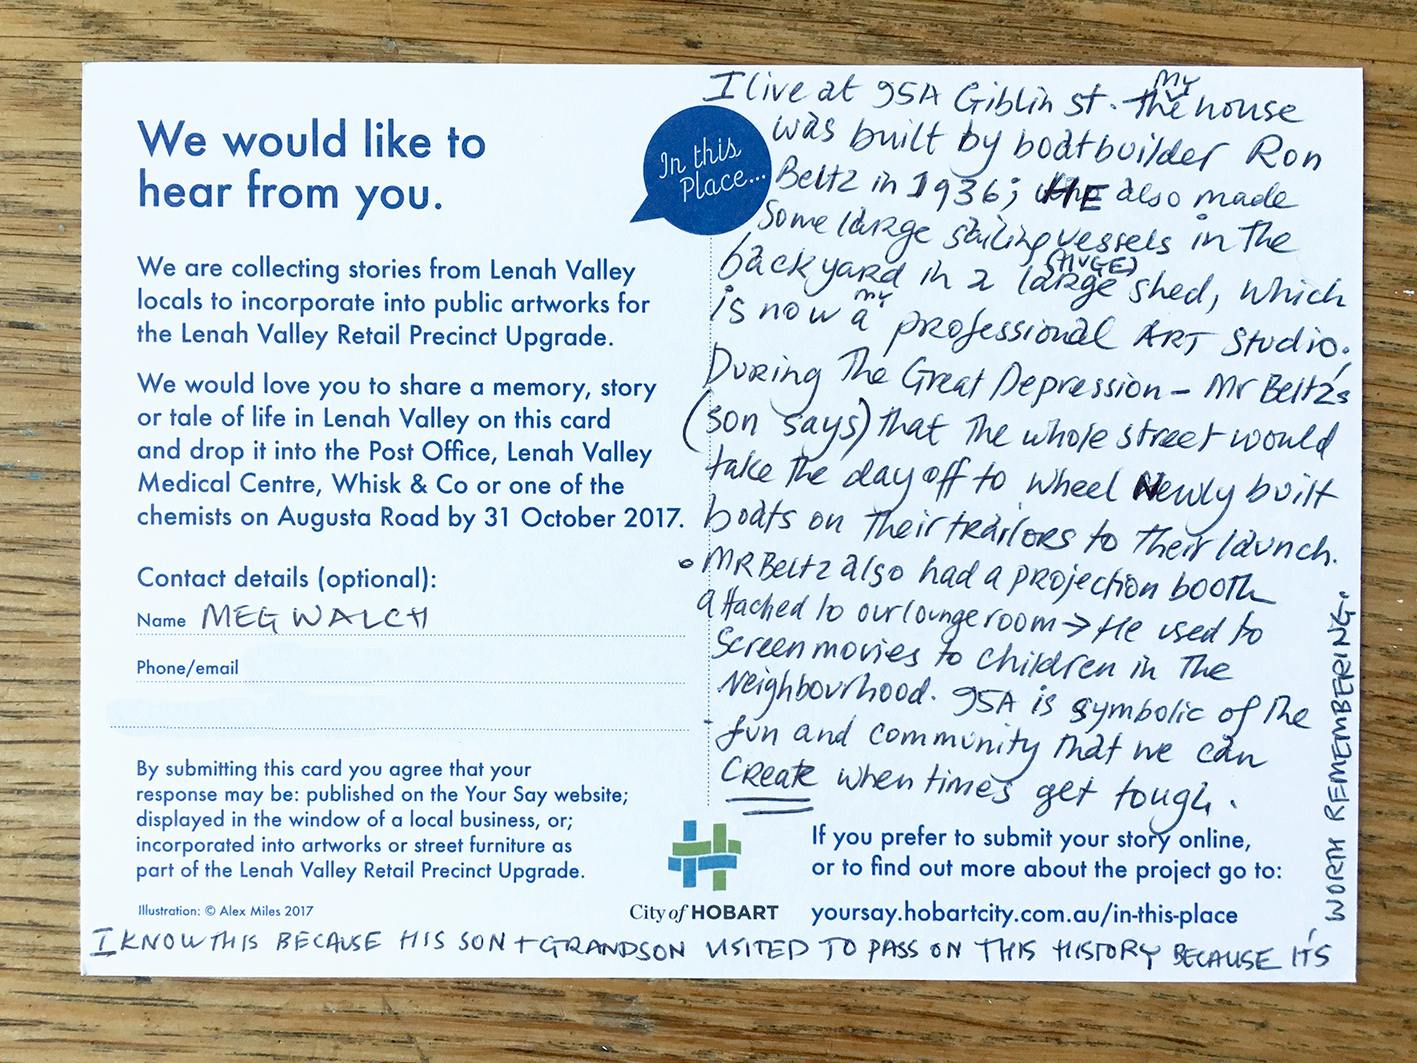 We would like to
hear from you.
We are collecting stories from Lenah Valley
locals to incorporate into public artworks for
the Lenah Valley Retail Precinct Upgrade.
We would love you to share a memory, story
or tale of life in Lenah Valley on this card
and drop it into the Post Office, Lenah Valley
Medical Centre, Whisk & Co or one of the
chemists on Augusta Road by 31 October 2017.
Contact details (optional):
Name MEG WALCH
Phone/email
By submitting this card you agree that your
response may be: published on the Your Say website;
displayed in the window of a local business, or;
incorporated into artworks or street furniture as
part of the Lenah Valley Retail Precinct Upgrade.
Illustration: © Alex Miles 2017
In this
Place...
I live at 95A Giblin st. the my house
was built by boatbuilder Ron
Beltz in 1936; HE also made
some large sailing vessels in the
backyard in a large (HUGE) shed, which
is now a my professional ART Studio.
During The Great Depression – Mr Beltz's
(son says) that The whole street would
take The day off to wheel Newly built
boats on Their trailors to Their launch.
• MR Beltz also had a projection booth
attached to our lounge room → He used to
Screen movies to children in The
Neighbourhood. 95A is symbolic of The
fun and community that we can
create when times get tough.
If you prefer to submit your story online,
or to find out more about the project go to:
City of HOBART
yoursay.hobartcity.com.au/in-this-place
I KNOW THIS BECAUSE HIS SON + GRANDSON VISITED TO PASS ON THIS HISTORY BECAUSE IT'S
WORTH REMEMBERING.